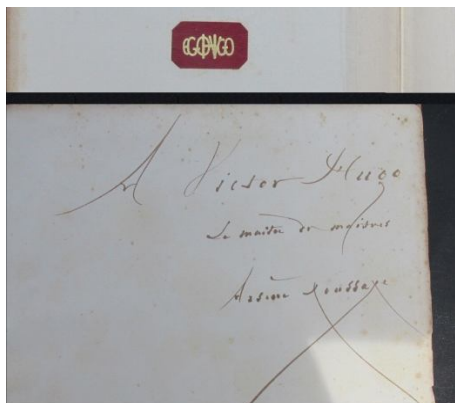 EGO HVGO
A Victor Hugo
Le maitre des maitres
Arsène Houssaye